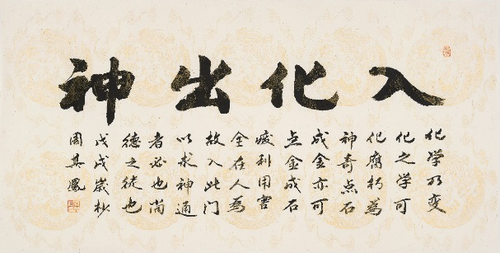 入化出神
化学乃变
化之学可
化腐朽为
神奇点石
成金亦可
点金成石
利用害
全在人为
故入此门
以求神通
者必也尚
德之徒也
戊戌岁杪
周其凤